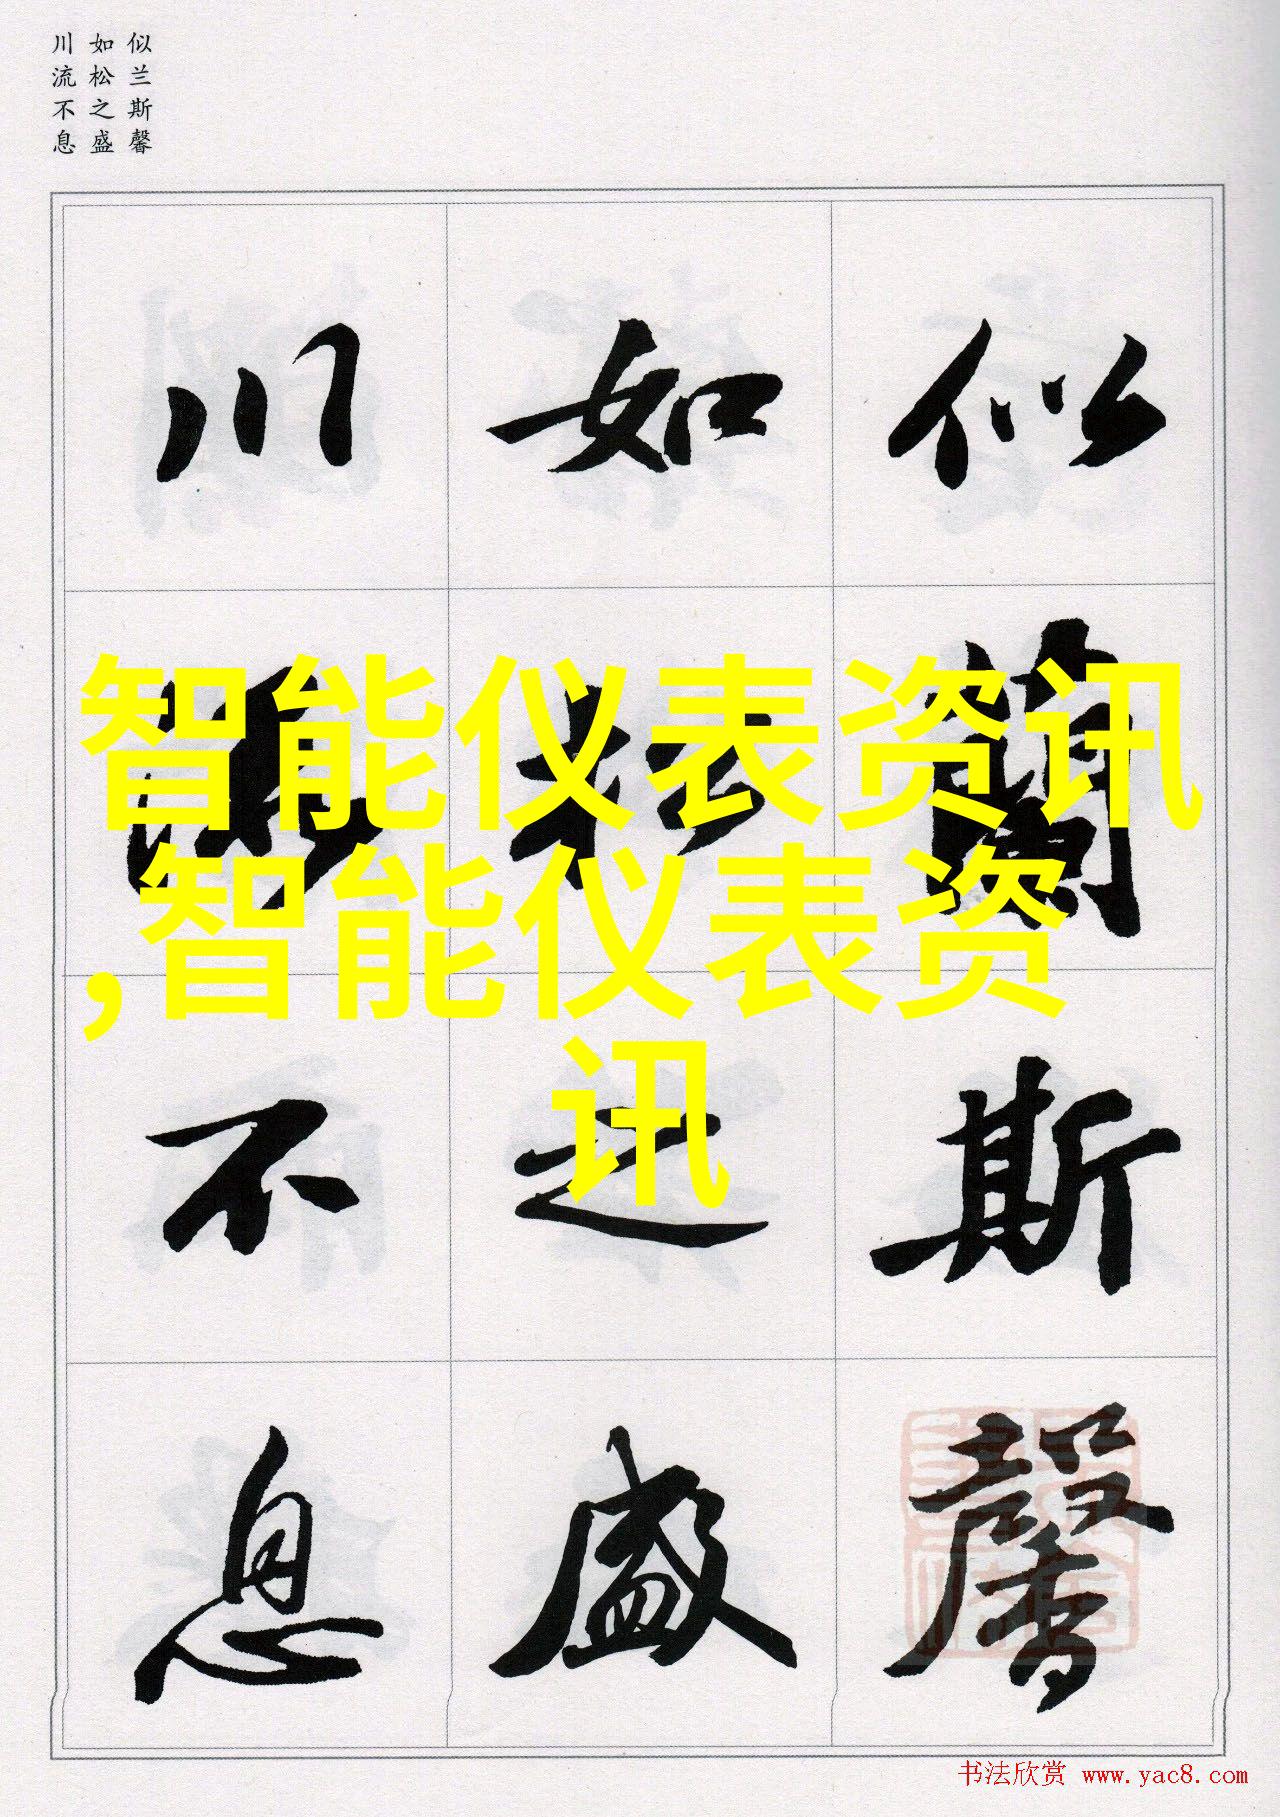 似兰斯馨
如松之盛
川流不息
似蘭斯馨
如松之盛
川流不息
智能仪表资讯
,智能仪表资
讯
书法欣赏 www.yac8.com